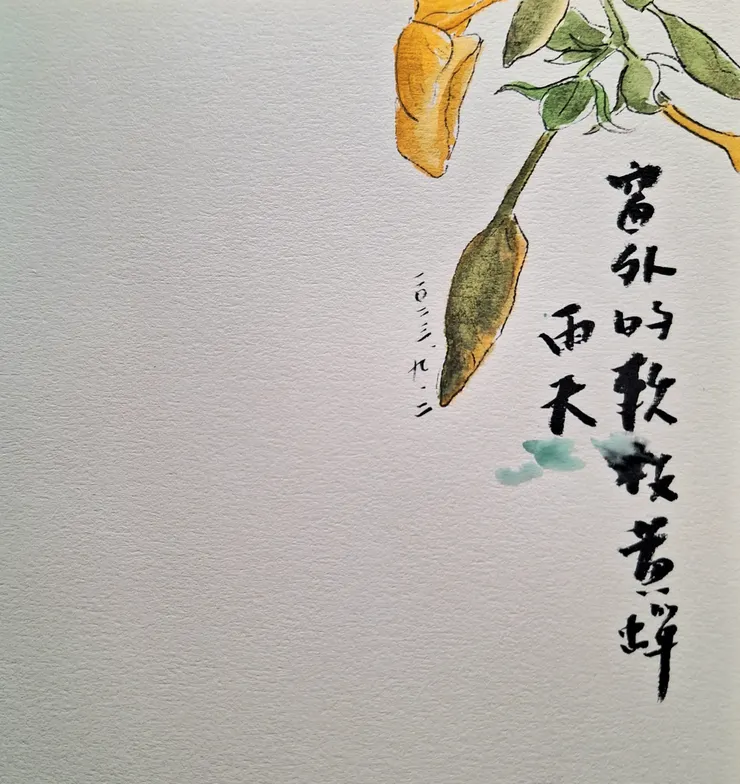 窗外的軟枝黄蟬
雨天
二〇二三.九.二